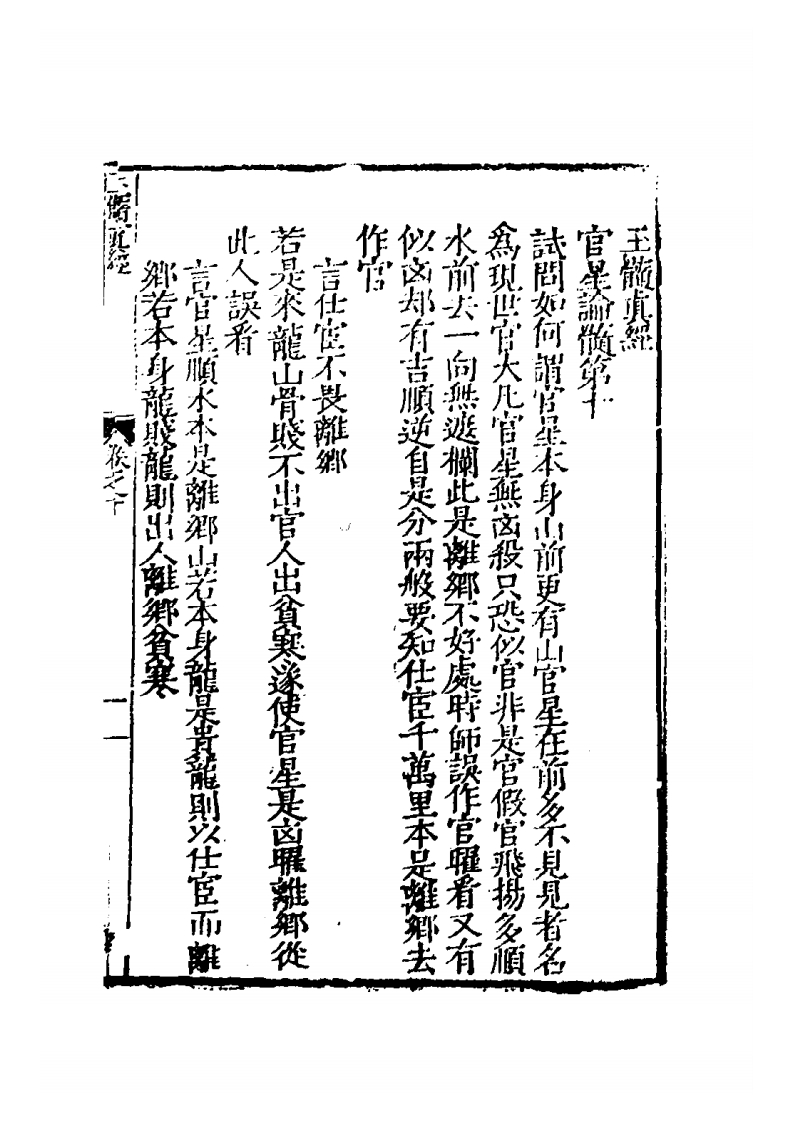 玉髓真經
官星論髓第十
試問如何謂官星本身山前更有山官星在前多不見見者名
為現世官大凡官星無凶殺只恐似官非是官假官飛揚多順
水前去一向無遮欄此是離鄉不好處時師誤作官曜看又有
似凶却有吉順逆自是分兩般要知仕宦千萬里本是離鄉去
作官
言仕宦不畏離鄉
若是來龍山骨賤不出官人出貧寒遂使官星是凶曜離鄉從
此人誤看
言官星順水本是離鄉山若本身龍是貴龍則以仕宦而離
鄉若本身龍賤龍則出人離鄉貧寒
玉髓真經
卷之十
一